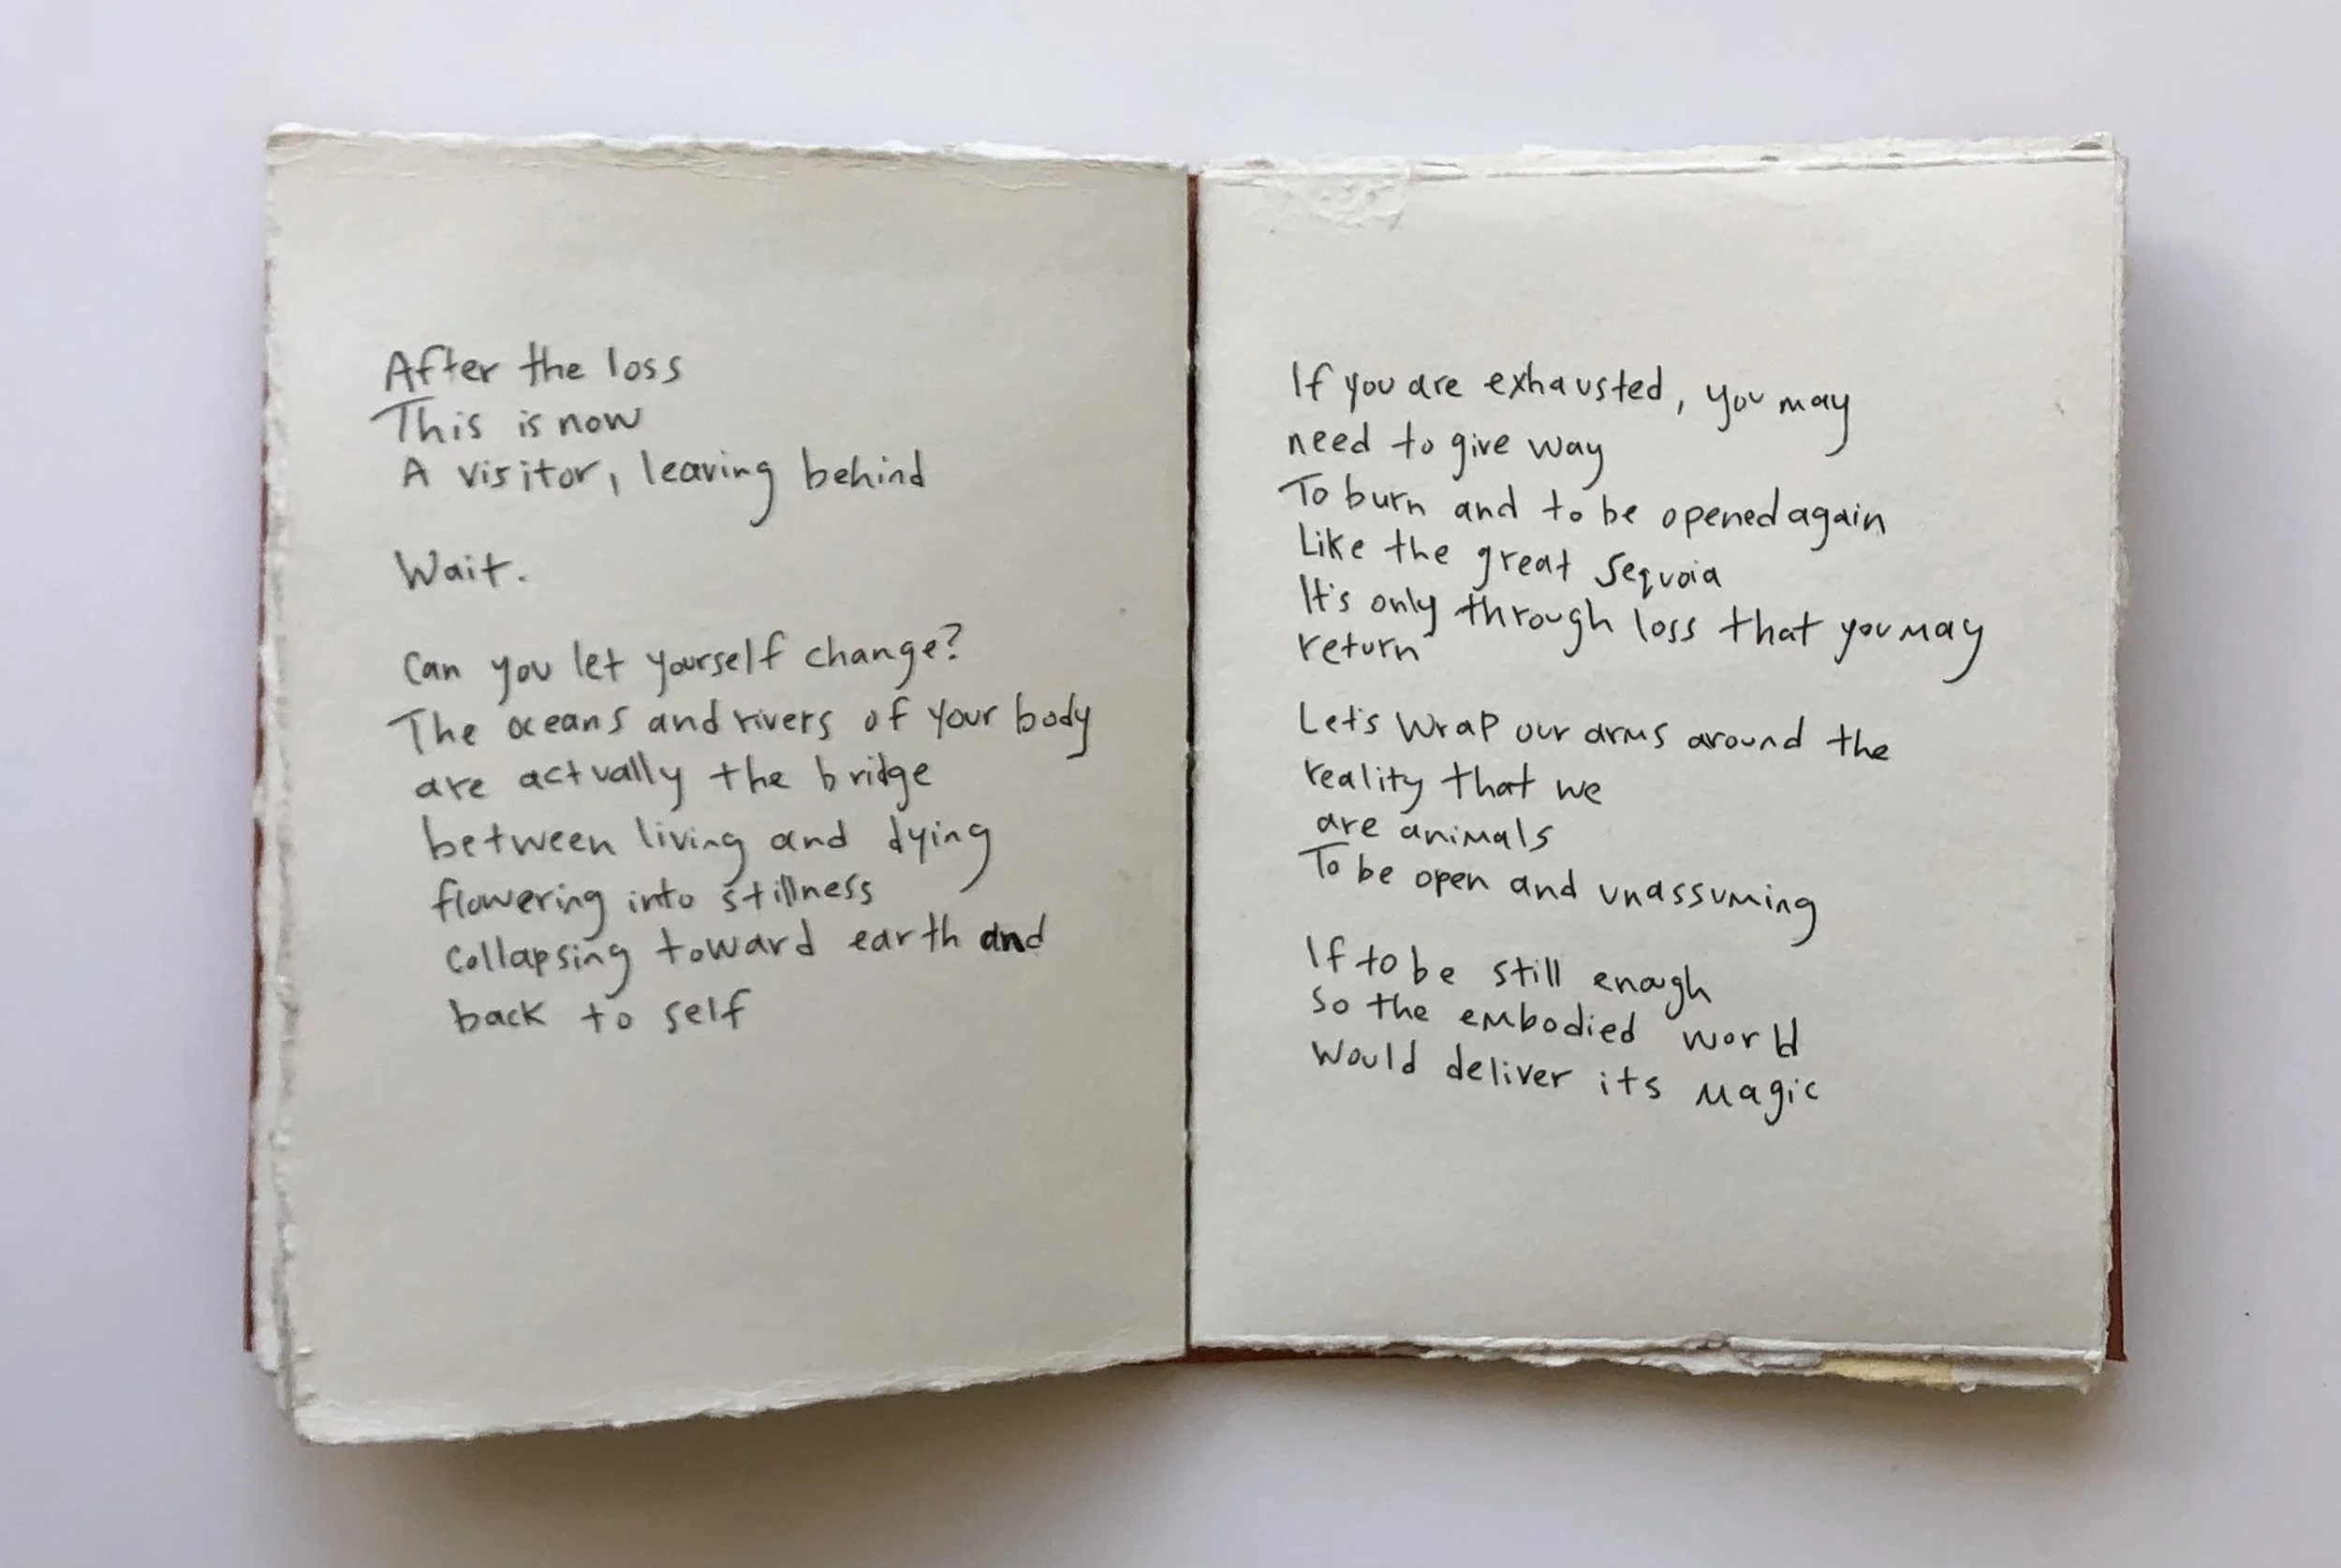 After the loss
This is now
A visitor, leaving behind
Wait.
Can you let yourself change?
The oceans and rivers of your body
are actually the bridge
between living and dying
flowering into stillness
collapsing toward earth and
back to self
If you are exhausted, you may
need to give way
To burn and to be opened again
Like the great sequoia
It's only through loss that you may
return
Let's wrap our arms around the
reality that we
are animals
To be open and unassuming
If to be still enough
So the embodied world
Would deliver its magic